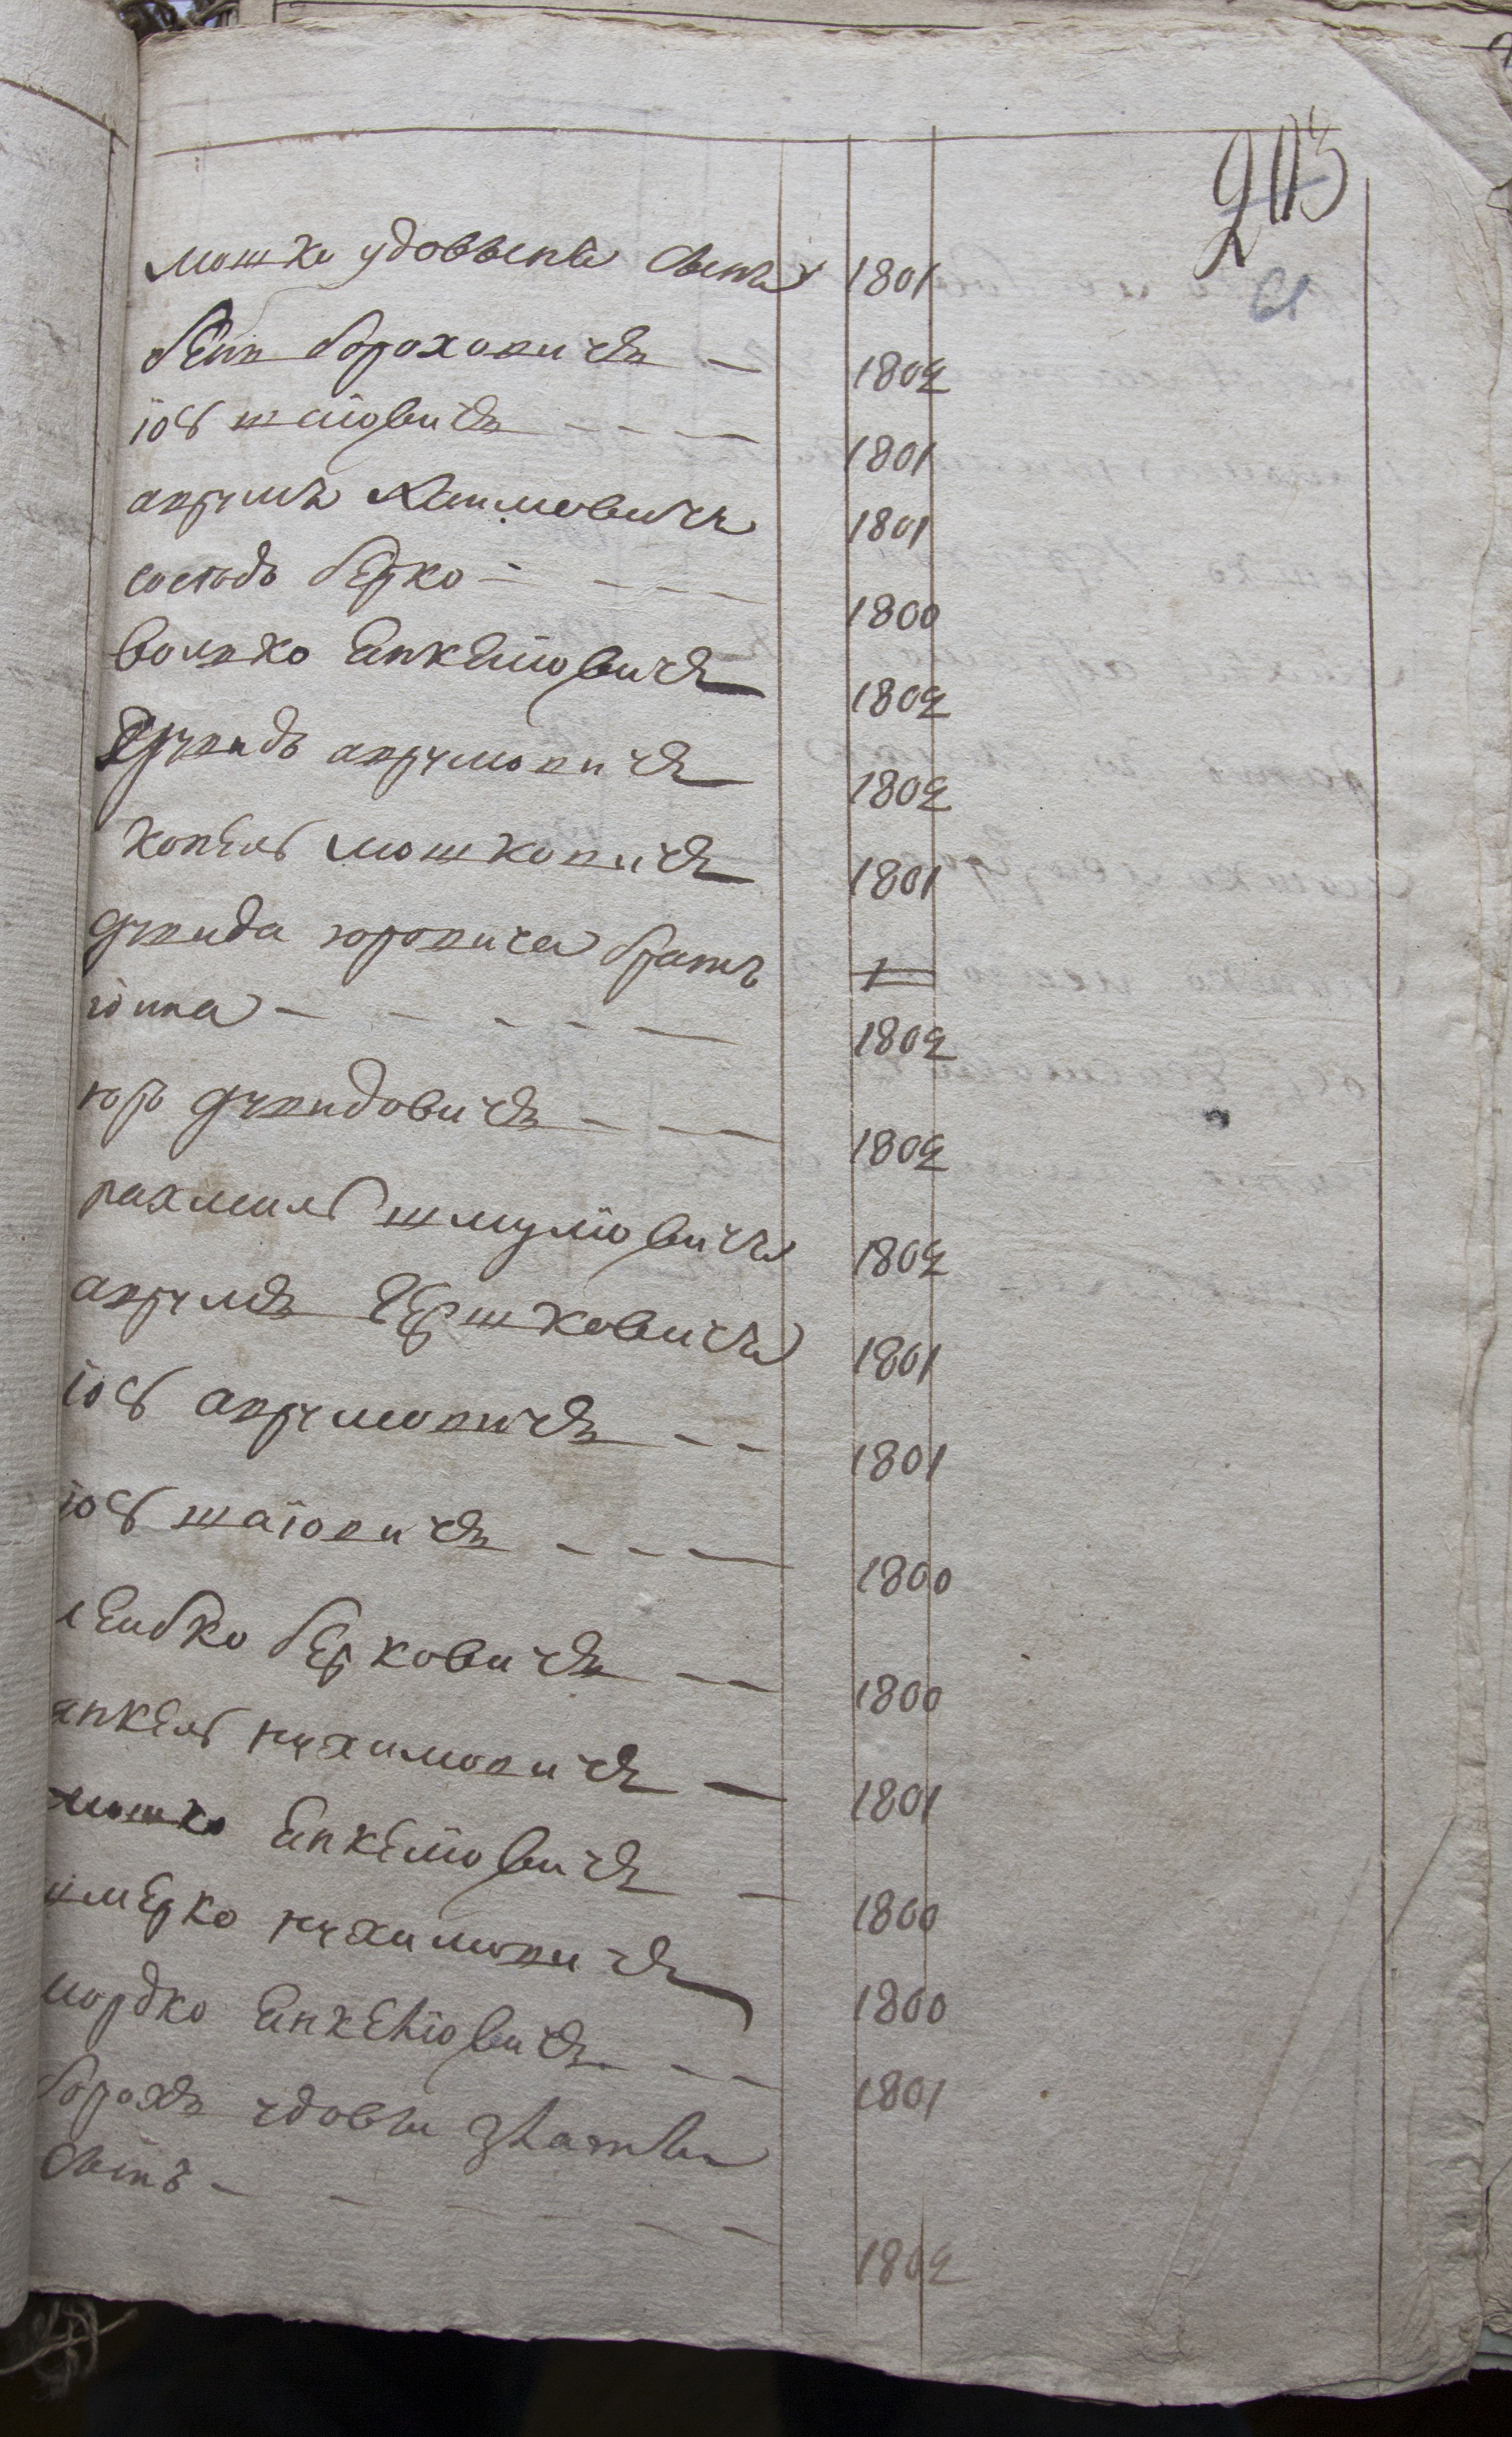 203
61
мошко удоввеныи сынъ 1801
бенъ бороховичъ 1802
іось шаіовичъ 1801
аврумъ хаимовичъ 1801
соседъ берко 1800
волько енкеліовичъ 1802
аврумовичъ 1802
копель мошковичъ 1801
дувида юровича братъ 1
іона 1802
юръ дувидовичъ 1802
рахмиль шмуліовичъ 1802
аврумъ гершковичъ 1801
іось аврумовичъ 1801
іось шаіовичъ 1800
лейбко берковичъ 1800
янкель нухимовичъ 1801
мошко енкеліовичъ 1800
шмерко нухимовичъ 1800
мордко енкеліовичъ 1801
борохъ удовы златы
сынъ 1802